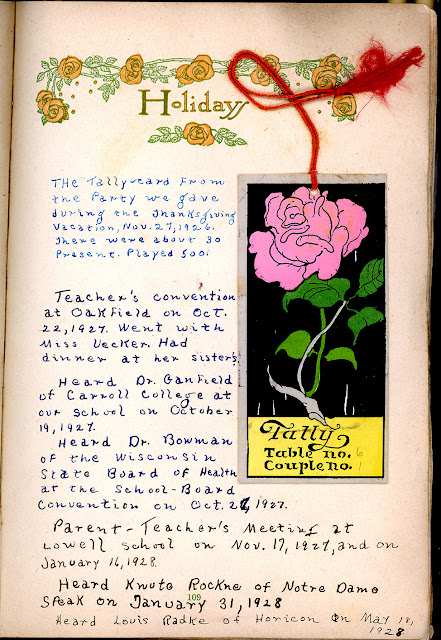 Holidays
THe Tally-card From
the Party we gave
during the Thanksgiving
Vacation, Nov. 27, 1926.
There were about 30
Present. Played 500.
Teacher's convention
at Oakfield on Oct.
22, 1927. Went with
Miss Uecker. Had
dinner at her sister's
Heard Dr. Ganfield
of Carroll College at
our School on October
19, 1927.
Heard Dr. Bowman
of the Wisconsin
State Board of Health
at the School-Board
Convention on Oct. 2, 1927.
Parent-Teacher's Meeting at
Lowell School on Nov. 17, 1927, and on
January 16, 1928.
Heard Knute Rockne of Notre Dame
Speak on January 31, 1928
109
Heard Louis Radke of Horicon on May 18,
1928
Tally
Table no. 6
Couple no. 1